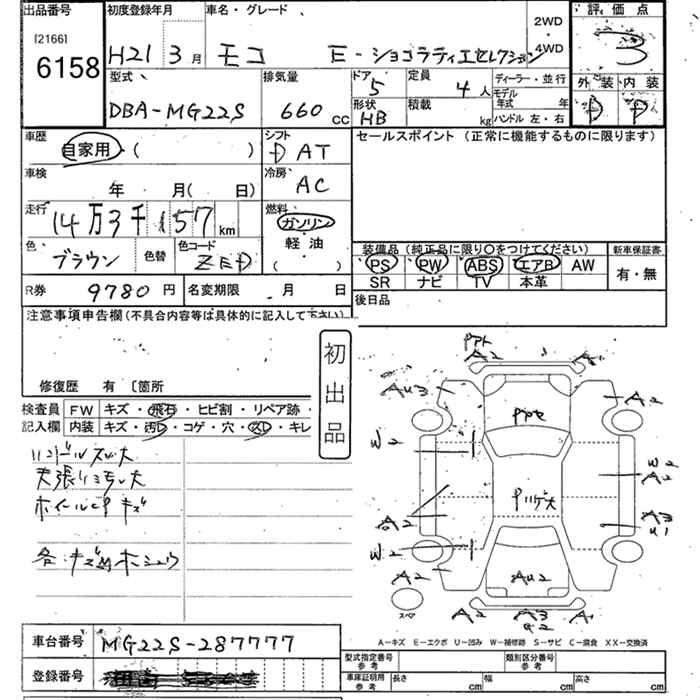 出品番号 初度登録年月 車名・グレード 評価点
[2166]
6158 H21 3月 モコ E-ショコラティエセレクション 2WD・4WD 3
型式 排気量 ドア 定員 ディーラー・並行 外装 内装
DBA-MG22S 660cc 5 4人 モデル年式 年 D D
形状 HB 積載 kg ハンドル 左・右
車歴 シフト セールスポイント (正常に機能するものに限ります)
自家用・( ) D AT
車検 冷房
年 月( 日) AC
走行 燃料
14万3千157km ガソリン
色 色替 色コード 軽油
ブラウン ZED ( )
装備品 (純正品に限り○をつけてください) 新車保証書
PS PW ABS エアB AW 有・無
SR ナビ TV 本革
R券 9780円 名変期限 月 日 後日品
注意事項申告欄(不具合内容等は具体的に記入して下さい)
初出品
修復歴 有 〔箇所
検査員 FW キズ・飛石・ヒビ割・リペア跡・
記入欄 内装 キズ・汚れ・コゲ・穴・スレ・キレ
天張りヨゴレ大
ホイールCPキズ
各・キズ凹ホシュウ
A2 A1
AU3 A2
W2 W2
A2
A2 A3
U1
W2
A2 AU2 A2
スペア A2 A3 A1
A-キズ E-エクボ U-凹み W-補修跡 S-サビ C-腐食 XX-交換済
車台番号 MG22S-287777
登録番号
型式指定番号 参考 類別区分番号 参考
車庫証明用 参考 長さ cm 幅 cm 高さ cm